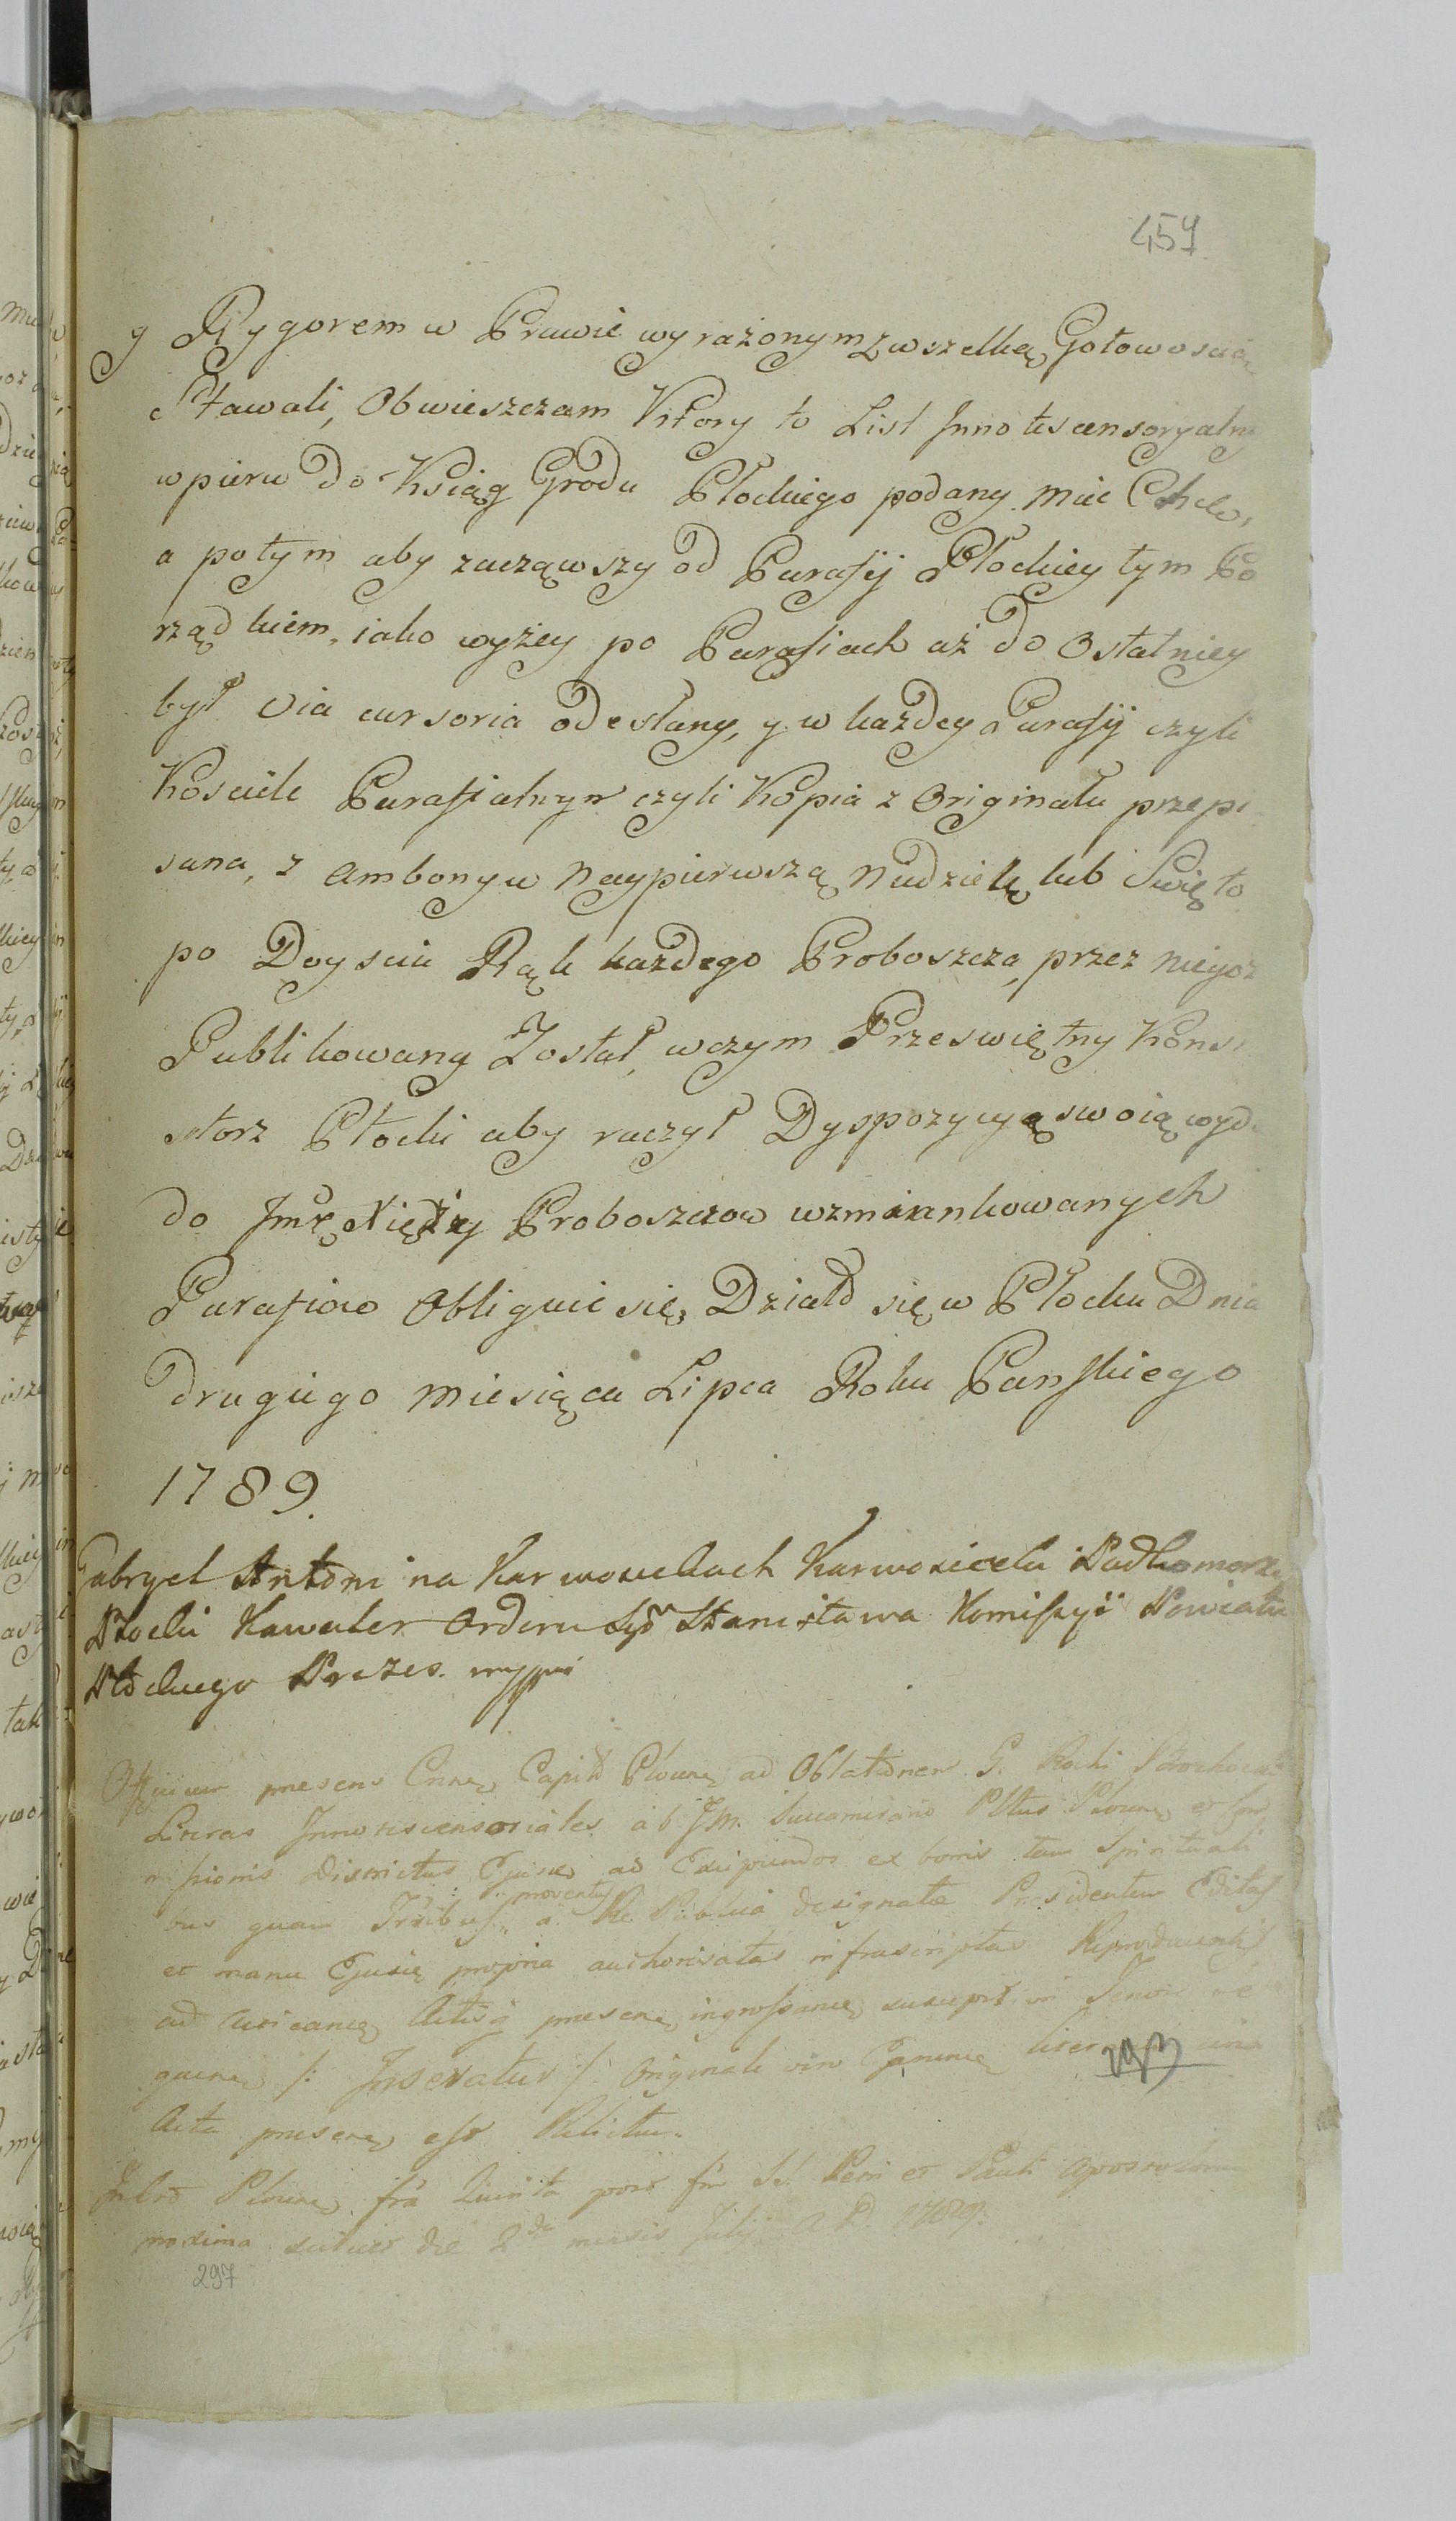 457
y Rygorem w Prawie wyrażonym z wszelką Gotowoscią
Stawali, Obwieszczam Ktory to List Innotescensoryalny
wpierw do Ksiąg Grodu Płockiego podany mieć Chcę,
a potym aby zacząwszy od Parafij Płockiey tym Po
rządkiem, iako wyżey po Parafiach aż do Ostatniey
był via cursoria odesłany, y w każdey Parafij czyli
Kosciele Parafialnym czyli Kopia z Originału przepi
sana, z Ambony w Naypierwszą Niedzielę lub Swięto
po Doyściu Rąk każdego Proboszcza, przez niegoż
Publikowany Został, wczym Przeswiętny Konsy
storz Płocki aby raczył Dyspozycyą swoią wyda
do Jmć Xięży Proboszczow wzmiankowanych
Parafiow Obliguie się, Działo się w Płocku Dnia
drugiego Miesiąca Lipca Roku Panskiego
1789.
Gabryel Antoni na Karwosieckach Karwosiecki Podkomorzy
Płocki Kawaler Orderu Sgo Stanisława Komissyi Powiatu
Płockiego Prezes. mppć
Officium praesens Castrense Capitle Plocense ad Oblationem G. Rochi
Literas Innotescensoriales ab JM. Succamerario Pltus Plocen et Com
missionis Districtus Ejusd ad Excipiendos ex bonis tam Spirituali
bus quam proventus a Re Publica designatae Praesidentem Editas
et manu Ejusd propria authorisatas infrascriptas Reproducentis
ad acticand Actisq praesen ingrossand suscepit in Tenore se
quen /: Inseratur /: Originale vero earund literar
Acta praesen est Relictum.
Plocen fra Quinta post fm SS. Petri et Pauli Apostolorum
proxima scilicet die 2da mensis Julij A D 1789.
297